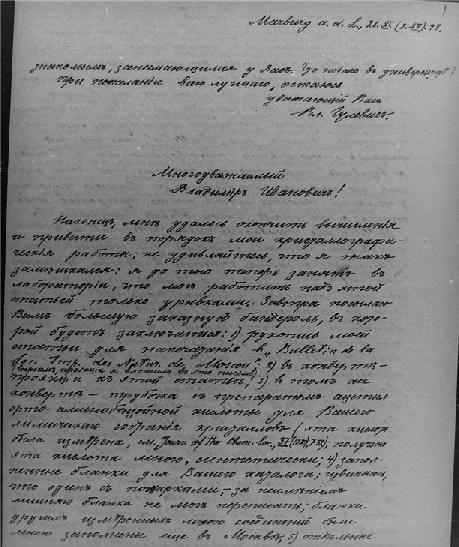 Marburg a. d. L., 21. XI. (3. XII). 98.
знакомымъ, занимающимся у Васъ. Что новаго въ университетѣ?
При пожеланіи всего лучшаго, остаюсь
уважающій Васъ
Вл. Гулевичъ.
Многоуважаемый
Владиміръ Ивановичъ!
Наконецъ, мнѣ удалось окончить вычисленія
и привести въ порядокъ мои кристаллографи-
ческія работы; не удивляйтесь, что я такъ
замѣшкался: я до того теперь занятъ въ
лабораторіи, что могъ работать надъ этой
статьей только урывками. Завтра посылаю
Вамъ большую заказную бандероль, въ кото-
рой будетъ заключаться: 1) рукопись моей
статьи для напечатанія въ „Bulletin de la
Soc. Imp. des Natur. de Moscou"; 2) въ конвертѣ
къ этой статьѣ; 3) въ томъ же
конвертѣ - трубочка съ препаратомъ
кислоты для Вашего
химическаго собранія кристалловъ (эта кислота
была измѣрена, см. Journ. of the Chem. Soc.,
эта кислота мною, синтетически; 4) запол-
ненные бланки для Вашего каталога; извиняюсь,
что одинъ съ помарками; за неимѣніемъ
бланка не могъ переписать; бланки
другихъ измѣренныхъ мною соединеній были
мною заполнены еще въ Москвѣ; 5) отдѣльные